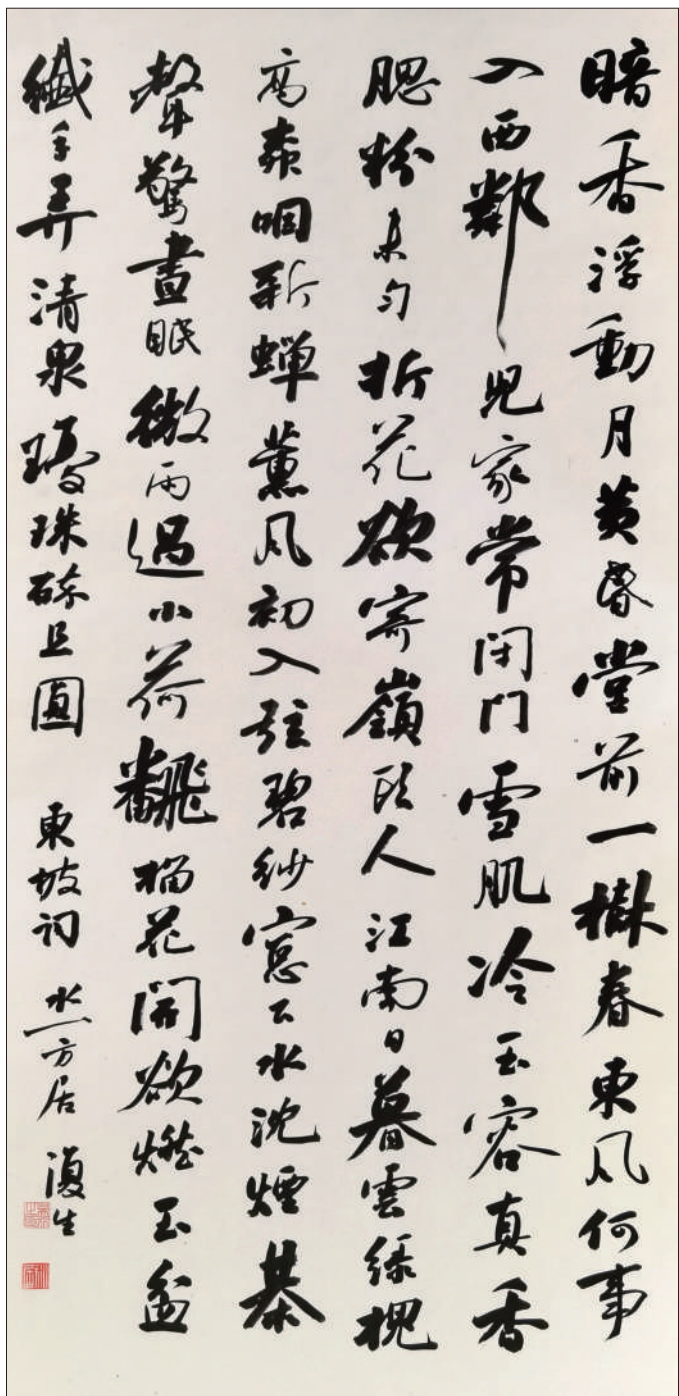 暗香浮動月黄昏堂前一樹春東風何事
入西鄰兒家常閉門雪肌冷玉容真香
腮粉未勻折花欲寄嶺頭人江南日暮雲綠槐
高柳咽新蟬薰風初入弦碧紗窓下水沈煙棊
聲驚晝眠微雨過小荷飜榴花開欲燃玉盆
纖手弄清泉瓊珠碎且圓 東坡词 水一方居 生